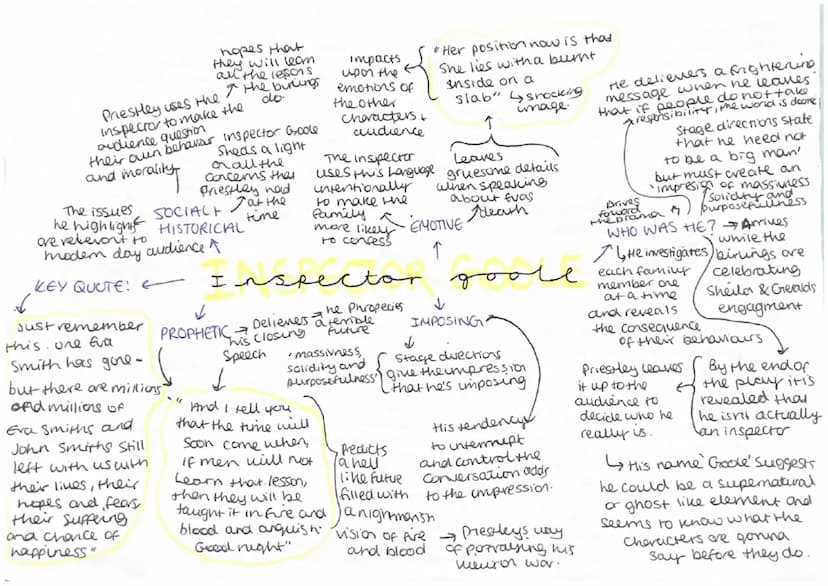 Inspector goole
INSPECTOR GOOLE
KEY QUOTE:
Just remember
this. one Eva
Smith has gone -
but there are millions
and millions of
Eva Smiths and
John Smiths still
left with us with
their lives, their
hopes and fears,
their suffering
and chance of
happiness"
SOCIAL +
HISTORICAL
The issues
he highlights
are relevent to
modern day audience
Priestley uses the
inspector to make the
audience question
their own behavior
and morality
hopes that
they will learn
all the lessons
the birlings
do.
Inspector Goole
sheds a light
on all the
concerns that
Priestley had
at the
time
EMOTIVE
The inspector
uses this language
intentionally
to make the
family
more likely
to confess
Leaves
gruesome details
when speaking
about Evas
death
"Her position now is that
she lies with a burnt
inside on a
slab"
shocking
image.
Impacts
upon the
emotions of
the other
characters +
audience
WHO WAS HE?
Drives
forward
the drama
He delievers a frightening
message when he leaves-
that if people do not take
responsibility, the world is doomed
Stage directions state
that he need not
to be a big man'
but must create an
'impression of massiveness
solidity and
purposefulness
Arrives
while the
birlings are
celebrating
Sheila & Geralds
engagment
He investigates
each family
member one
at a time
and reveals
the consequence
of their behaviours
By the end of
the play it is
revealed that
he isn't actually
an inspector
Priestley leaves
it up to the
audience to
decide who he
really is.
His name 'Goole' suggests
he could be a supernatural
or ghost like element and
seems to know what the
characters are gonna
say before they do.
PROPHETIC
Delievers
his closing
speech
he Phropecies
a terrible
future
"And I tell you
that the time will
soon come when,
if men will not
learn that lesson,
then they will be
taught it in fire and
blood and anguish.
Good night"
Predicts
a hell
like future
filled with
a nightmarish
vision of fire
and blood
Priestleys way
of portraying his
view on war.
IMPOSING
'massivness,
solidity and
purposefulness'
Stage directions
give the impression
that he's imposing
His tendency
to interrupt
and control the
conversation adds
to the impression.